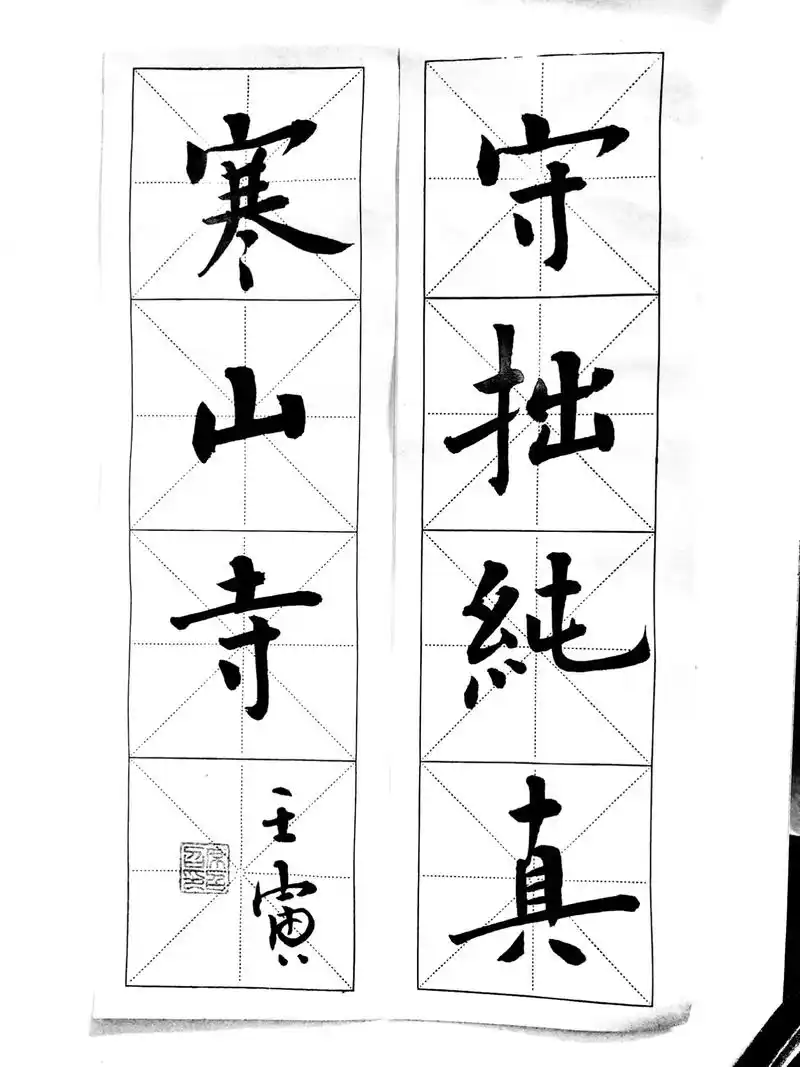 守拙純真
寒山寺
壬寅